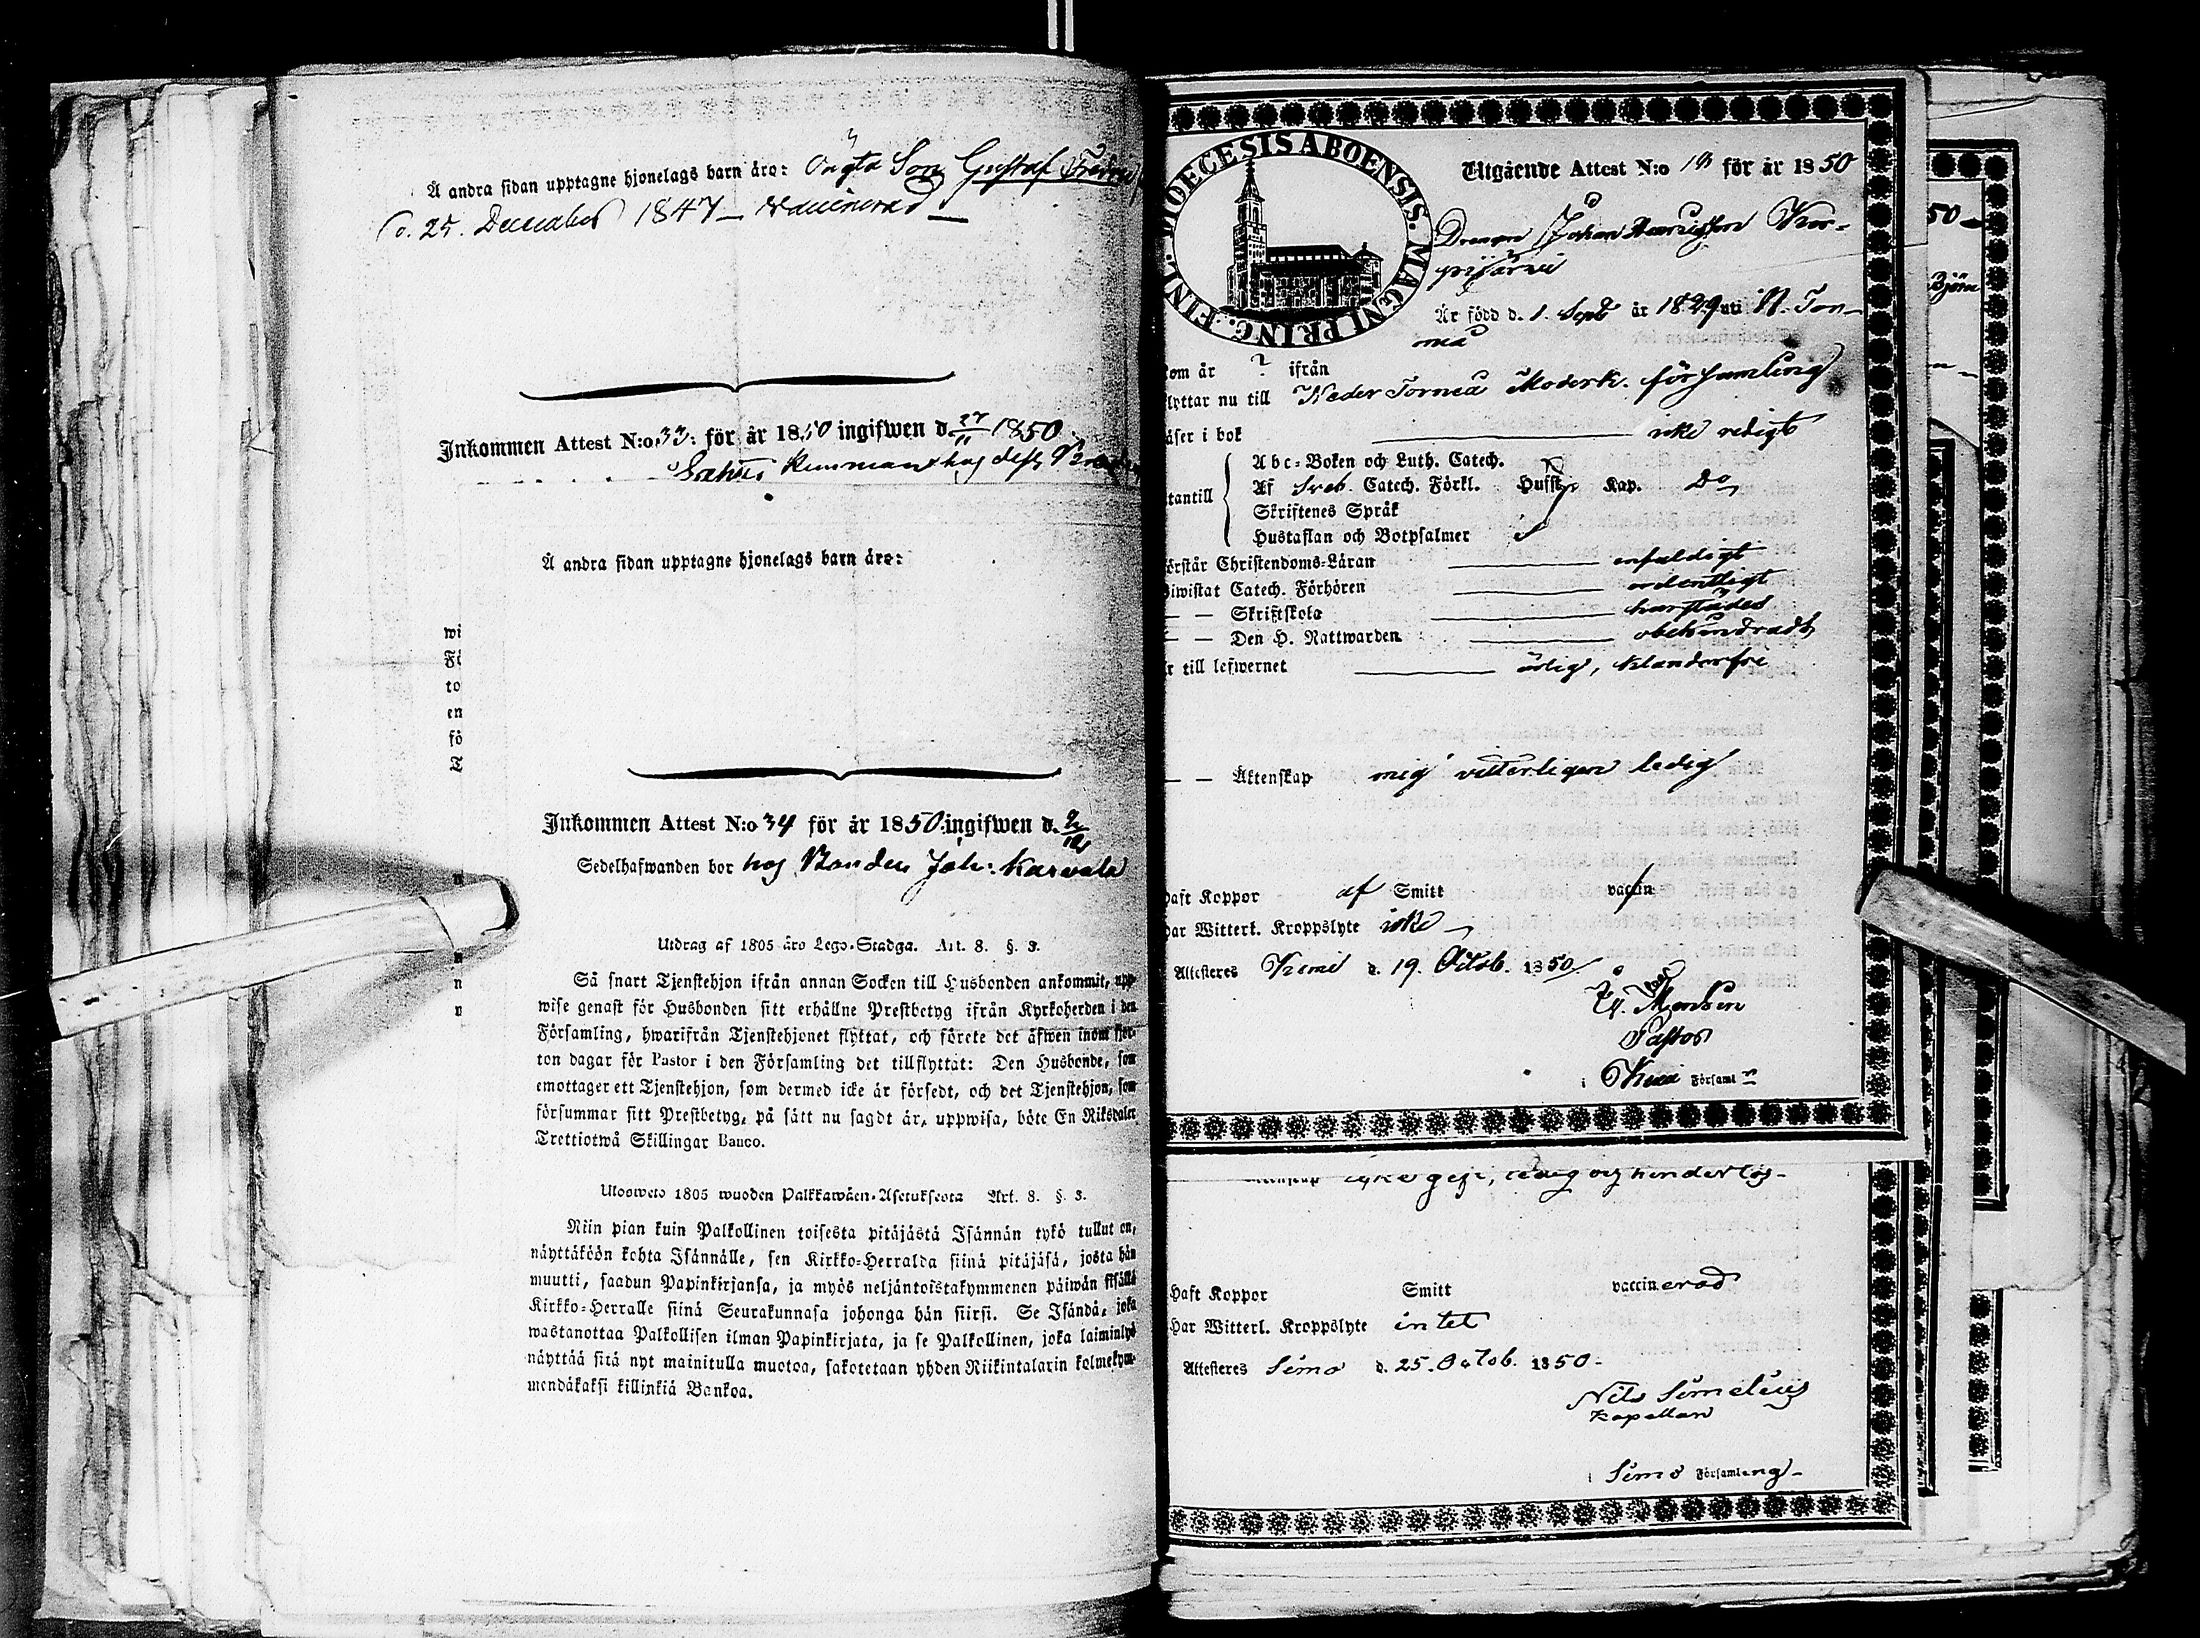 Å andra sidan upptagne hjonelags barn äro: Ängta Son Gustaf
d. 25. December 1847 — vaccinerad —
Inkommen Attest N:o 33: för år 1850 ingifwen d. 27/11 1850
hos dess
Å andra sidan upptagne hjonelags barn äro:
wi
Fö
to
en
fö
T
Inkommen Attest N:o 34 för år 1850 ingifwen d. 2/12
Sedelhafwanden bor hos Bonden Joh: Karvala
Utdrag af 1805 års Lego-Stadga. Art. 8. §. 3.
Så snart Tjenstehjon ifrån annan Socken till Husbonden ankommit, upp-
wise genast för Husbonden sitt erhållne Prestbetyg ifrån Kyrkoherden i den
Församling, hwarifrån Tjenstehjonet flyttat, och förete det äfwen inom fjor-
ton dagar för Pastor i den Församling det tillflyttat: Den Husbonde, som
emottager ett Tjenstehjon, som dermed icke är försedt, och det Tjenstehjon, som
försummar sitt Prestbetyg, på sätt nu sagdt är, uppwisa, böte En Riksdaler
Trettiotwå Skillingar Banco.
Ulosweto 1805 wuoden Palkkawäen-Asetuksesta Art. 8. §. 3.
Niin pian kuin Palkollinen toisesta pitäjästä Isännän tykö tullut on,
näyttäköön kohta Isännälle, sen Kirkko-Herralda siinä pitäjäsä, josta hän
muutti, saadun Papinkirjansa, ja myös neljäntoistakymmenen päiwän sisällä
Kirkko-Herralle siinä Seurakunnasa johonga hän siirsi. Se Isändä, joka
wastanottaa Palkollisen ilman Papinkirjata, ja se Palkollinen, joka laiminlyö
näyttää sitä nyt mainitulla muotoa, sakotetaan yhden Riikintalarin kolmekym-
mendäkaksi killinkiä Bankoa.
DIOECESIS ABOENSIS. MAGNI PRINC. FINL.
Utgående Attest N:o för år 1850
Drengen Johan Henriksson Kor-
pijärvi
Är född d. 1. Sept år 1829 uti N. Tor-
neå
kom år ? ifrån
flyttar nu till Neder Torneå Moderk. församling
läser i bok icke redigt
utantill
Abc-Boken och Luth. Catech.
Af Sveb. Catech. Förkl. Hufst. Kap. Do
Skriftenes Språk
Hustaflan och Botpsalmer
förstår Christendoms-Läran enfaldigt
Biwistat Catech. Förhören ordentligt
— — Skriftskola härstädes
— — Den H. Nattwarden obehindradt,
är till lefwernet ärlig, klanderfri
— — Äktenskap mig vitterligen ledig
haft Koppor af Smitt vaccin
har Witterl. Kroppslyte icke
Attesteres Kemi d. 19. Octob. 1850
Pastor
i Kemi Församl
icke gift, ledig och hinderlös
Haft Koppor Smitt vaccinerad
Har Witterl. Kroppslyte intet
Attesteres Simo d. 25. Octob. 1850-
Nils Simelius
Kapellan
i Simo Församlng-
50
Björn